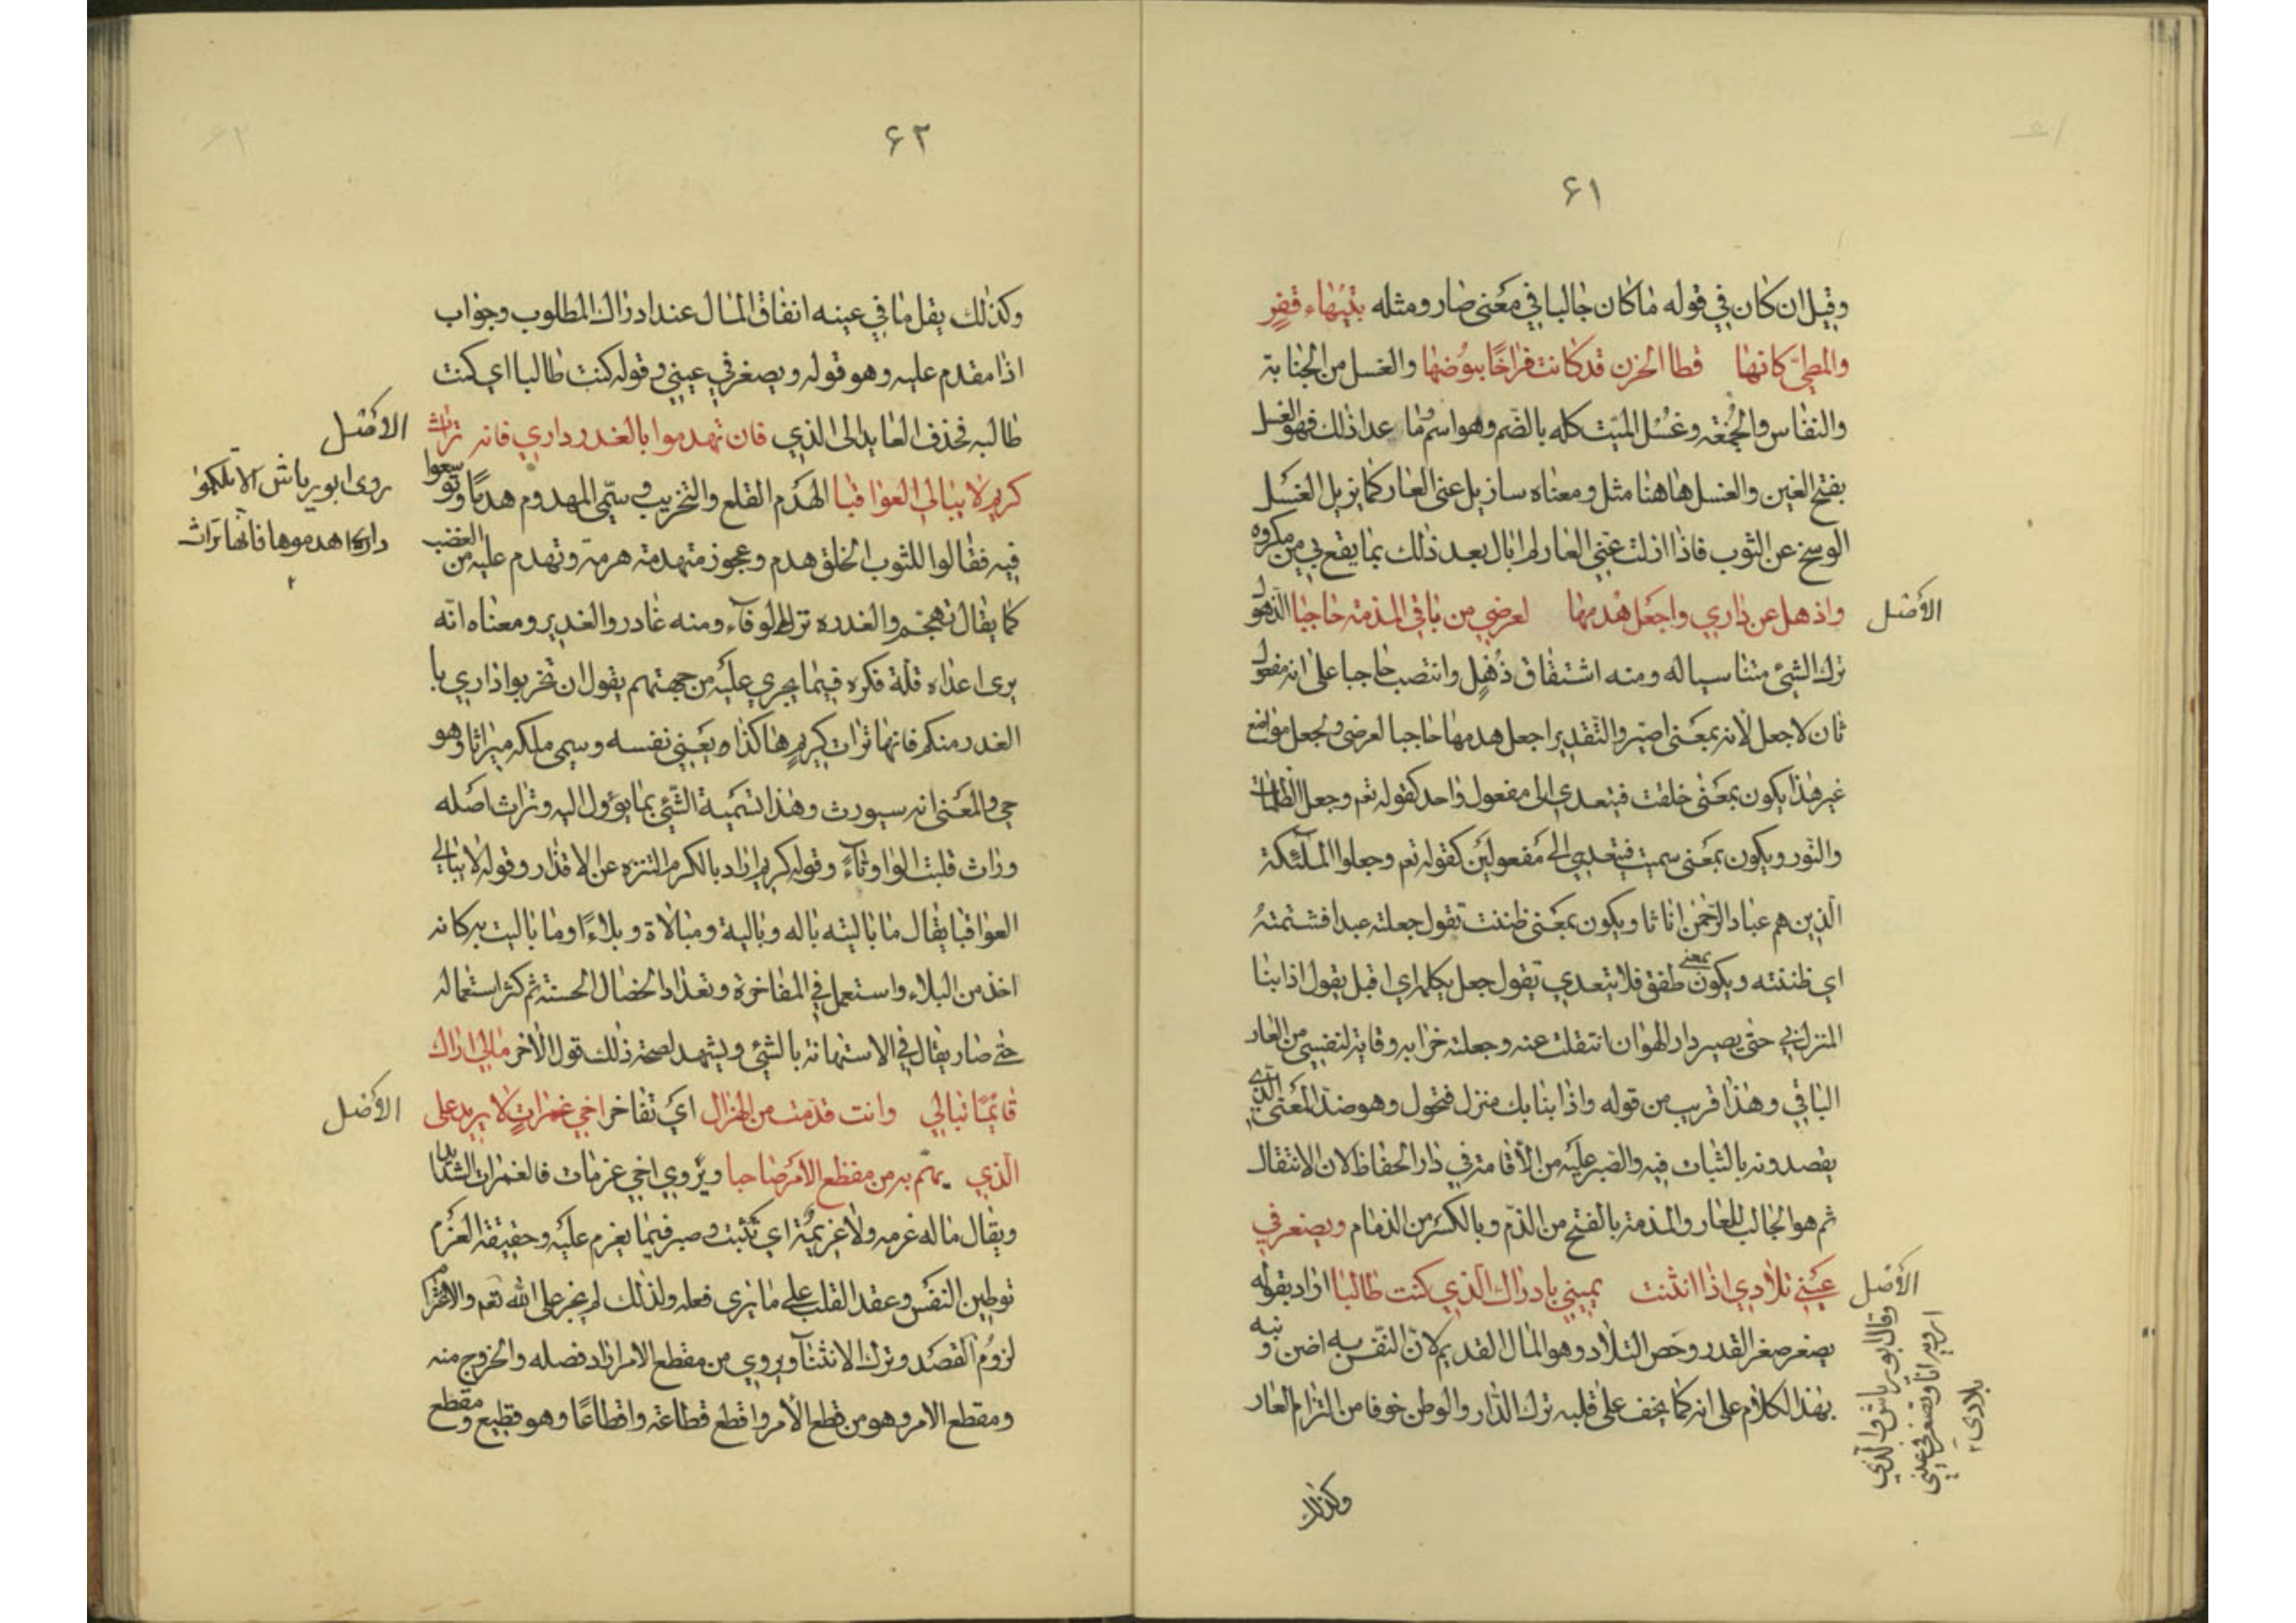 ٦١
وقيل ان كان في قوله ما كان جالبا في معنى صار ومثله بتيهاء قفر
والمطي كانها قطا الحزن قد كانت فراخا بيوضها والغسل من الجنابة
والنفاس والجمعة وغسل الميت كله بالضم وهو اسم وما عدا ذلك فهو الغسل
بفتح الغين والغسل هاهنا مثل ومعناه سازيل عنى العار كما يزيل الغسل
الوسخ عن الثوب فاذا ازلت عني العار لم ابال بعد ذلك بما يقع بي من مكروه
الاصل
واذهل عن داري واجعل هدمها لعرضي من باقي المذمة حاجبا الذهول
ترك الشيء متناسيا له ومنه اشتقاق ذهل وانتصب حاجبا على انه مفعول
ثان لاجعل لانه بمعنى اصير والتقدير اجعل هدمها حاجبا لعرضى ولجعل مواضع
غير هذا يكون بمعنى خلقت فيتعدي الى مفعول واحد كقوله تعم وجعل الظلمات
والنور ويكون بمعنى سميت فيتعدي الى مفعولين كقوله تعم وجعلوا الملئكة
الذين هم عباد الرحمن اناثا ويكون بمعنى ظننت تقول جعلته عبدا فشتمته
اي ظننته ويكون بمعنى طفق فلا يتعدي تقول جعل يكلم اي اقبل يقول اذا بنا
المنزل بي حتى يصير دار الهوان انتقلت عنه وجعلت خرابه وقاية لنفسي من العار
الباقي وهذا قريب من قوله واذا بنا بك منزل فتحول وهو ضد المعنى الذي
يقصدونه بالثبات فيه والصبر عليه من الاقامة في دار الحفاظ لان الانتقال
ثم هو الجالب للعار والمذمة بالفتح من الذم وبالكسر من الذمام ويصغر في
الاصل
عيني تلادي اذا انثنت يميني بادراك الذي كنت طالبا اراد بقوله
يصغر صغر القدر وخص التلاد وهو المال القديم لان النفس به اضن ونبه
بهذا الكلام على انه كما يخف على قلبه ترك الدار والوطن خوفا من التزام العار
وقال ابو رياش والذي
ارويه انا وتصغر في عيني
بلادي
وكذلك
٦٢
وكذلك يقل ما في عينه انفاق المال عند ادراك المطلوب وجواب
اذا مقدم عليه وهو قوله ويصغر في عيني وقوله كنت طالبا اي كنت
طالبه فحذف العايد الى الذي فان تهدموا بالغدر داري فانه تراث
الاصل
كريم لا يبالي العواقبا الهدم القلع والتخريب وسمي المهدوم هدما وتوسعوا
روى ابو رياش الا تلكموا
فيه فقالوا للثوب الخلق هدم وعجوز متهدمة هرمة وتهدم عليه من الغضب
داري اهدموها فانها تراث
كما يقال تهجم والغدر ترك الوفاء ومنه غادر والغدير ومعناه انه
يرى اعداه قلة فكره فيما يجري عليه من جهتهم يقول ان تخربوا داري با
الغدر منكم فانها تراث كريم هاكذا ويعني نفسه وسمى ملكه ميراثا وهو
حي والمعنى انه سيورث وهذا تسمية الشيء بما يؤول اليه وتراث اصله
وراث قلبت الواو تاء وقوله كريم اراد بالكرم التنزه عن الاقذار وقوله لا يبالي
العواقبا يقال ما باليته باله وبالية ومبالاة وبلاء وما باليت به كانه
اخذ من البلاء واستعمل في المفاخرة وتعداد الخصال الحسنة ثم كثر استعماله
حتى صار يقال في الاستهانة بالشيء ويشهد لصحة ذلك قول الاخر مالي اراك
قائما تبالي وانت قدمت من الهزال اي تفاخر اخي غمرات لا يريد على
الاصل
الذي يهم به من مفظع الامر صاحبا ويروي اخي عزمات فالغمرات الشدايد
ويقال ما له عزمه ولا عزيمة اي تثبت وصبر فيما يعزم عليه وحقيقة العزم
توطين النفس وعقد القلب على ما يرى فعله ولذلك لم يجز على الله تعم والاعتزام
لزوم القصد وترك الانثناء ويروي من مقطع الامر اراد فصله والخروج منه
ومقطع الامر وهو من فظع الأمر وافظع فظاعة وافظاعا وهو فظيع ومفظع